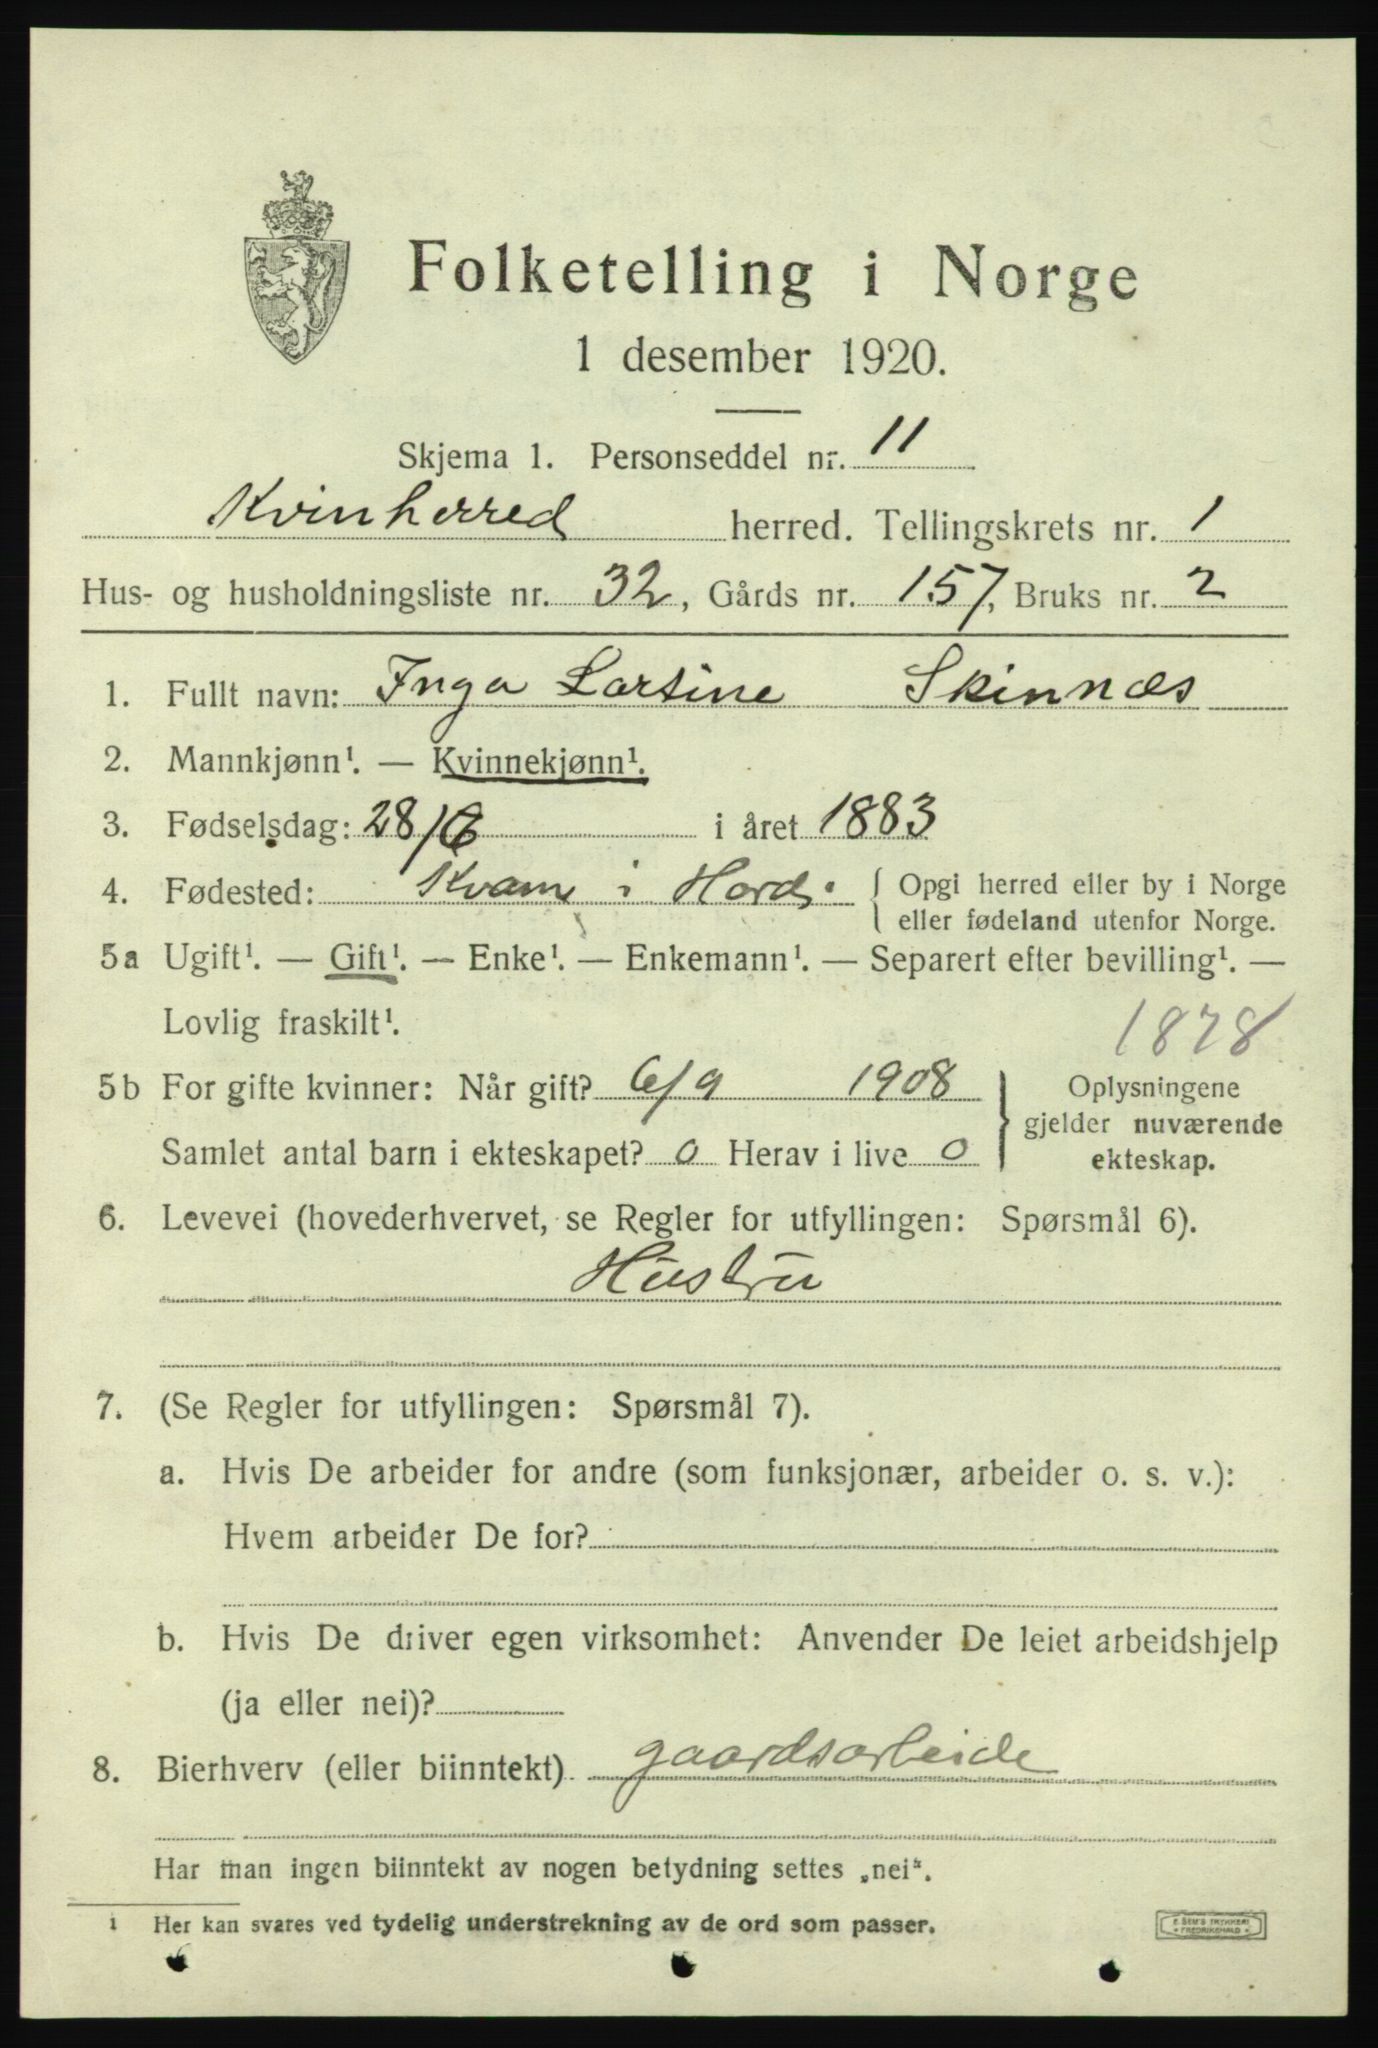 Folketelling i Norge
1 desember 1920.
Skjema 1. Personseddel nr. 11
Kvinherred herred. Tellingskrets nr. 1
Hus- og husholdningsliste nr. 32, Gårds nr. 157, Bruks nr. 2
1. Fullt navn: Inga Lartine Skinnæs
2. Mannkjønn¹. — Kvinnekjønn¹.
3. Fødselsdag: 28/6 i året 1883
4. Fødested: Kvam i Hord. { Opgi herred eller by i Norge
eller fødeland utenfor Norge.
5a Ugift¹. — Gift¹. — Enke¹. — Enkemann¹. — Separert efter bevilling¹. —
Lovlig fraskilt¹.
1878
5b For gifte kvinner: Når gift? 6/9 1908 } Oplysningene
gjelder nuværende
Samlet antal barn i ekteskapet? 0 Herav i live 0 ekteskap.
6. Levevei (hovederhvervet, se Regler for utfyllingen: Spørsmål 6).
Hustru
7. (Se Regler for utfyllingen: Spørsmål 7).
a. Hvis De arbeider for andre (som funksjonær, arbeider o. s. v.):
Hvem arbeider De for?
b. Hvis De driver egen virksomhet: Anvender De leiet arbeidshjelp
(ja eller nei)?
8. Bierhverv (eller biinntekt) gaardsarbeide
Har man ingen biinntekt av nogen betydning settes „nei".
1 Her kan svares ved tydelig understrekning av de ord som passer.
E. SEM'S TRYKKERI
FREDRIKSHALD